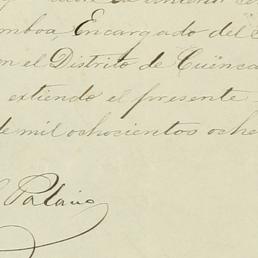 mboa, Encargado del
en el Distrito de Cuënca
extiendo el presente
de mil ochocientos oche
Palacio